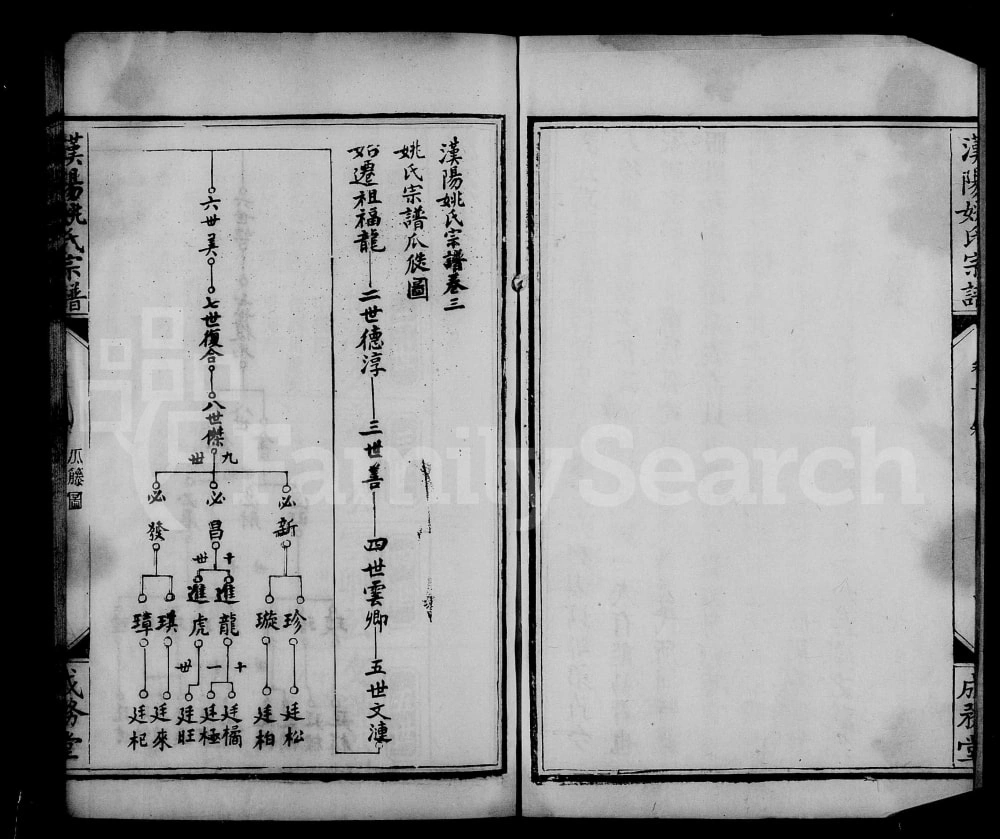 漢陽姚氏宗譜
成務堂
漢陽姚氏宗譜卷三
姚氏宗譜瓜瓞圖
始遷祖福龍 二世德淳 三世善 四世雲卿 五世文漣
六世美 七世復合 八世傑
九世
必新
必昌
必發
十世
珍
璇
進龍
進虎
璂
璋
十一世
廷松
廷柏
廷橘
廷極
廷旺
廷來
廷杞
漢陽姚氏宗譜
瓜藤圖
成務堂
FamilySearch